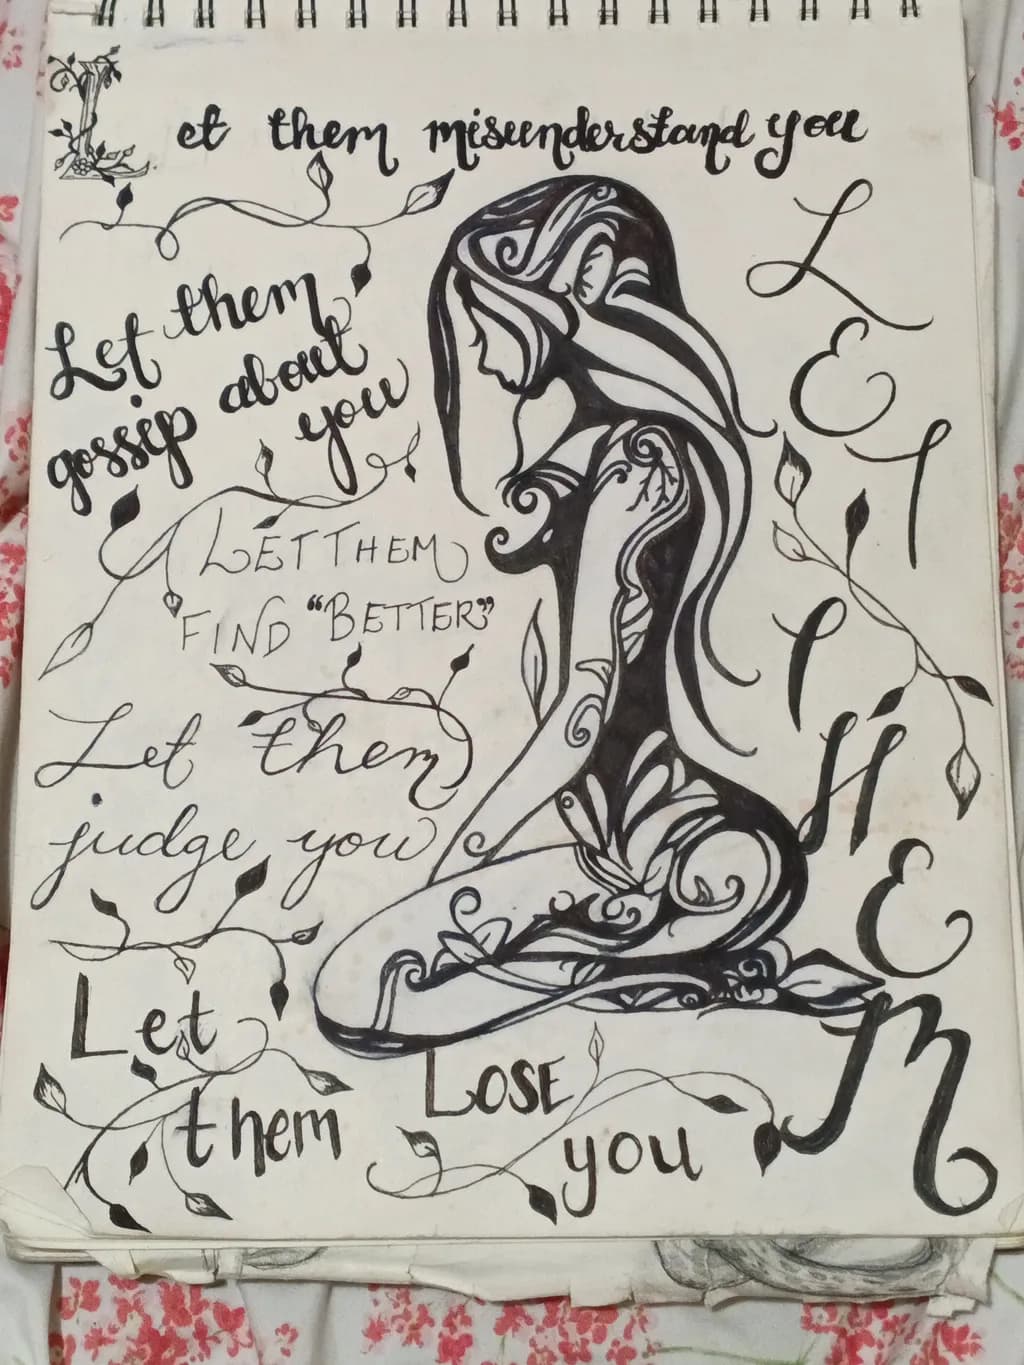 Let them misunderstand you
Let them
gossip about
you
LET THEM
FIND "BETTER"
Let them
judge you
Let
them
LOSE
you
LET THEM